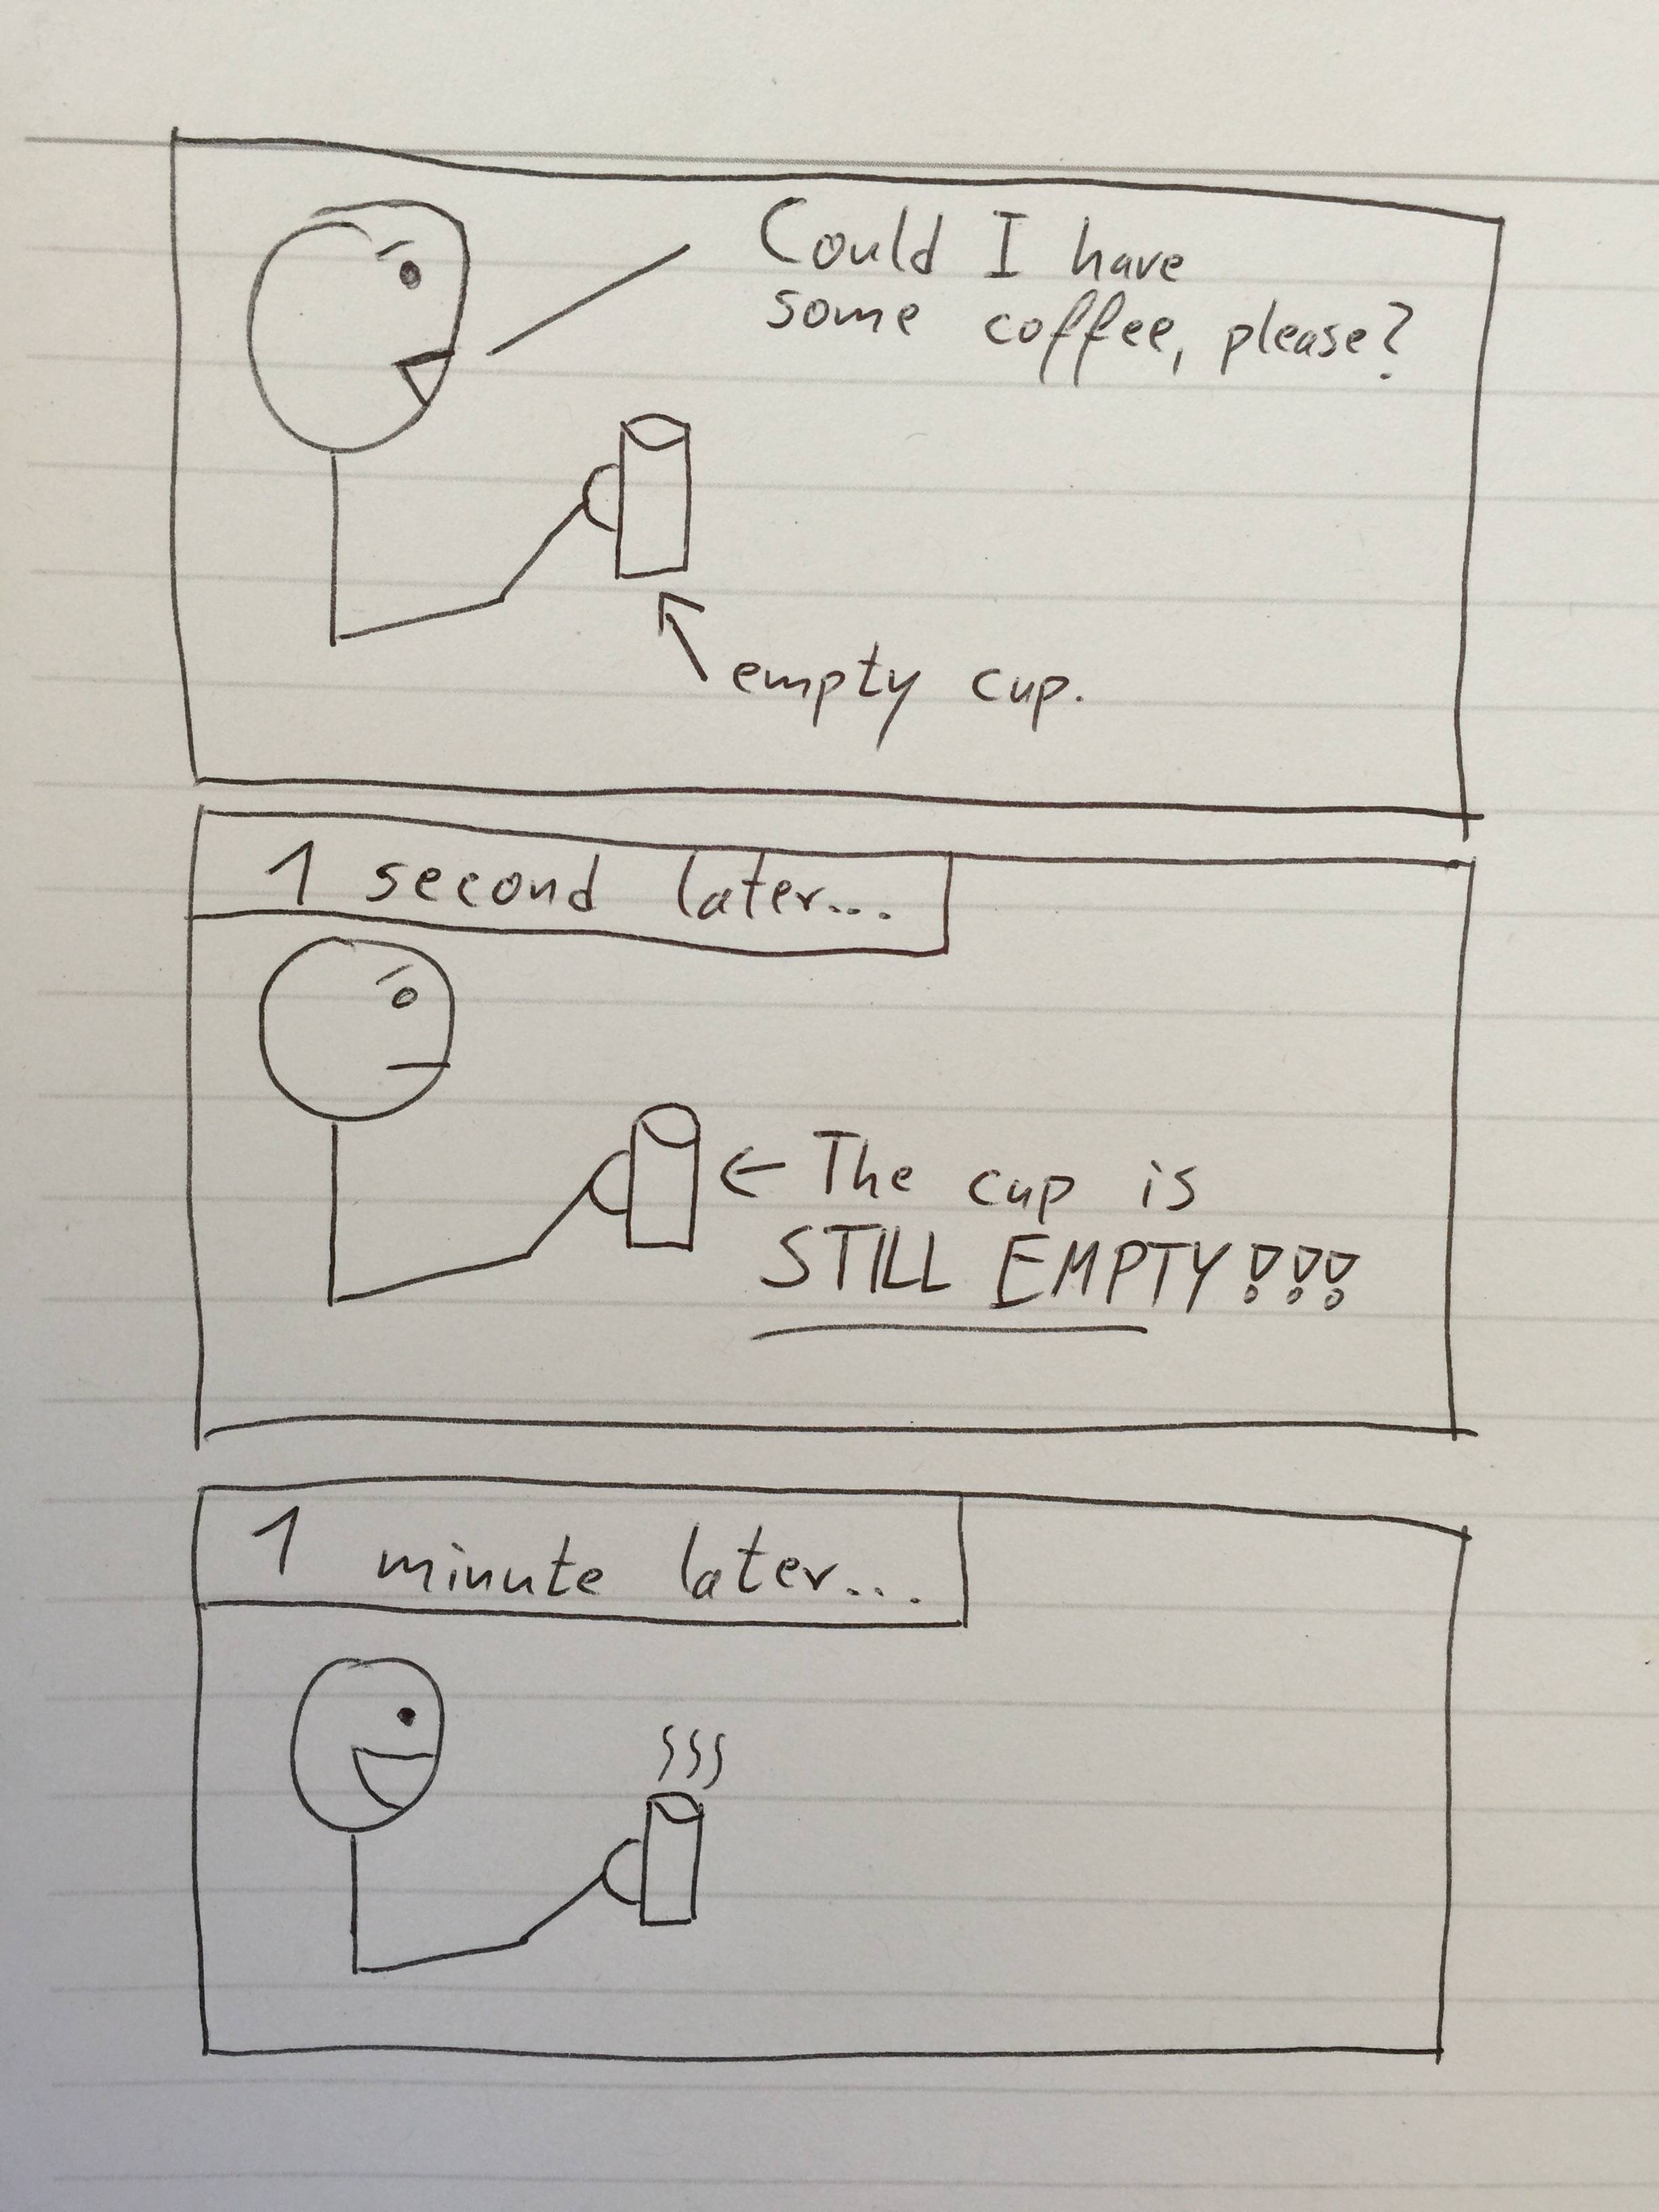 Could I have
some coffee, please?
empty cup.
1 second later...
The cup is
STILL EMPTY!!!
1 minute later...